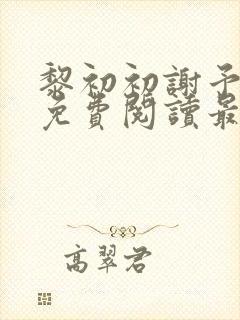 黎初初謝予
免費閱讀最
高翠君